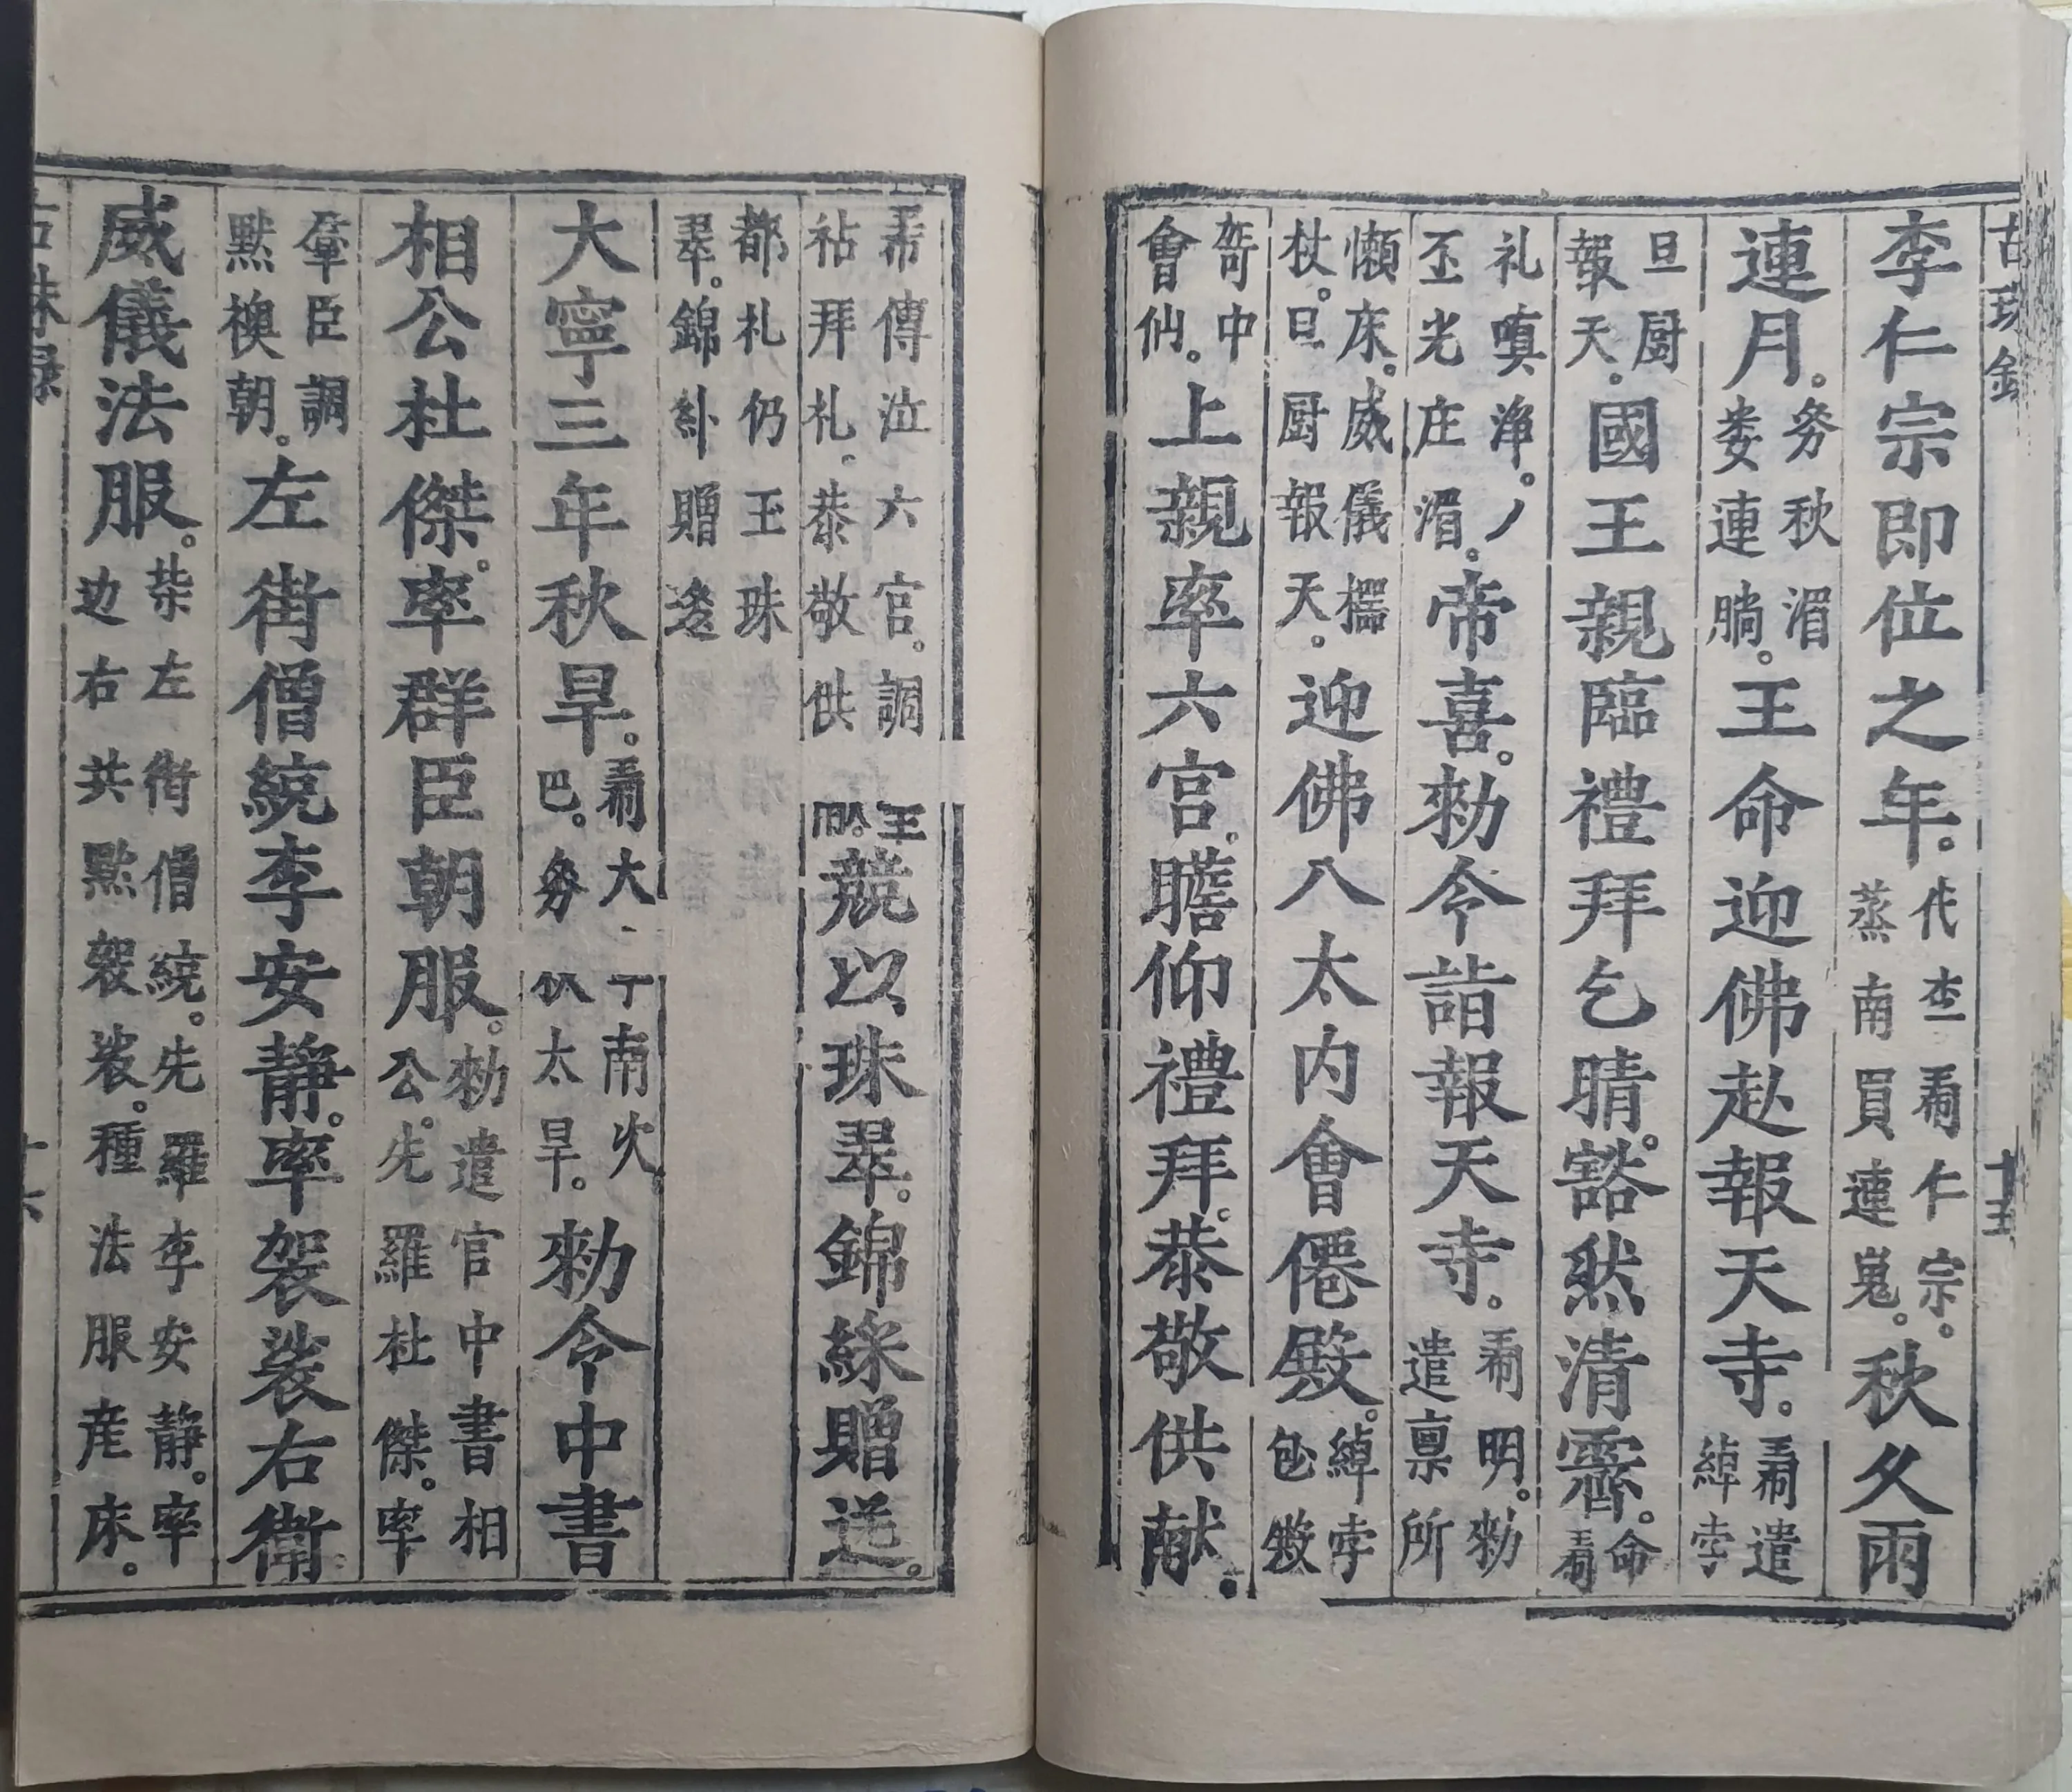 古珠錄
十五
李仁宗即位之年。代𠁀𤤰仁宗。蒸南買連嵬。秋久雨
連月。务秋湄娄連𦝄。王命迎佛赴報天寺。𤤰遣綽孛
旦厨報天。國王親臨禮拜乞晴。豁然清霽。命𤤰
礼嗔净。丿丕光庄湄。帝喜。勑令詣報天寺。𤤰明。勑遣禀所
懶床。威儀擺杖。旦厨報天。迎佛八太内會僊殿。綽孛
𡖡中會仙。上親率六宫。瞻仰禮拜。恭敬供献。
傳泣六官。調祜拜礼。恭敬供 競以珠翠。錦綵贈送。
都札仍玉珠翠。錦卦贈迻
大寧三年秋旱。𤤰大 南 巴。务 太旱。勑令中書
相公杜傑。率群臣朝服。勑遣官中書相公。先羅杜傑。率
羣臣調㸃襖朝。左街僧統李安静。率袈裟右街
威儀法服。柴左街僧統。先羅李安静。率边右共㸃袈裟。種法服産床。